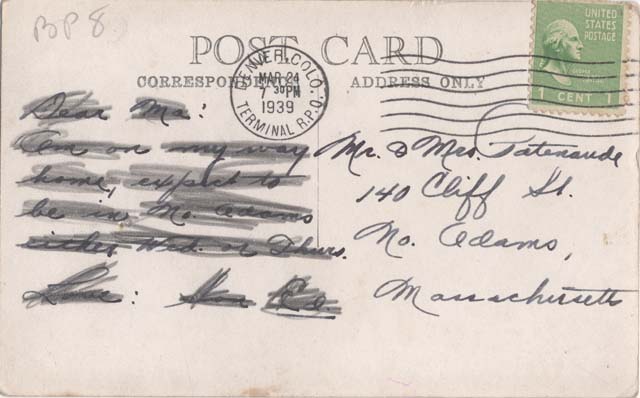 BP 8
POST CARD
CORRESPONDENCE ADDRESS ONLY
UNITED
STATES
POSTAGE
1 CENT 1
DENVER, COLO.
MAR 24
7 30 PM
1939
TERMINAL R.P.O.
Dear Ma:
Am on my way
home, expect to
be in No. Adams
either Wed. or Thurs.
Love: Son Ed.
Mr. & Mrs. Patenaude
140 Cliff St.
No. Adams,
Massachusetts